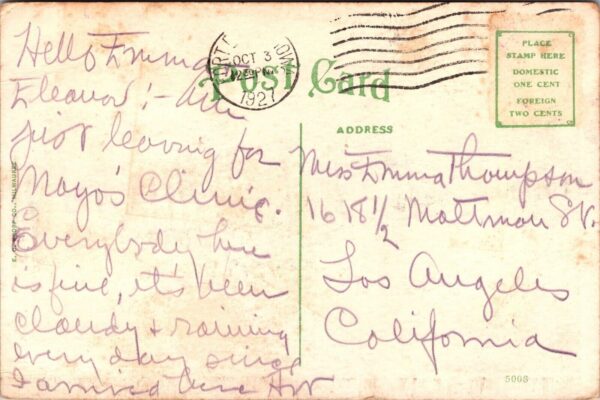 Hello Emma
Eleanor! - Am
just leaving for
Mayo's Clinic.
Everybody here
is fine, it's been
cloudy & raining
every day since
I arrived here
OCT 3
1927
IOWA
Post Card
ADDRESS
PLACE
STAMP HERE
DOMESTIC
ONE CENT
FOREIGN
TWO CENTS
Miss Emma Thompson
1618 1/2 St.
Los Angeles
California
5008